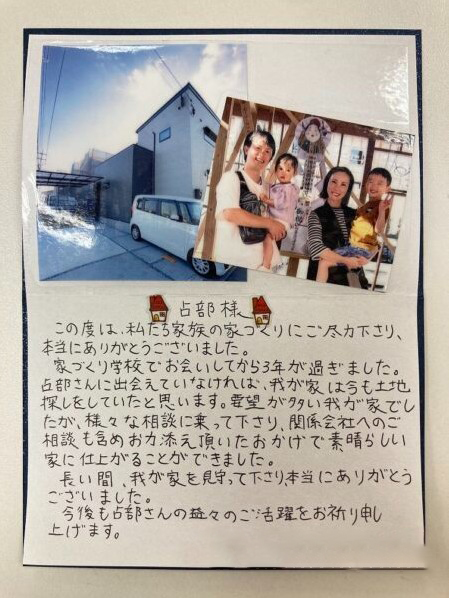 占部様
この度は、私たち家族の家づくりにご尽力下さり、
本当にありがとうございました。
家づくり学校でお会いしてから3年が過ぎました。
占部さんに出会えていなければ、我が家は今も土地
探しをしていたと思います。要望が多い我が家でし
たが、様々な相談に乗って下さり、関係会社へのご
相談も含めお力添え頂いたおかげで素晴らしい
家に仕上がることができました。
長い間、我が家を見守って下さり本当にありがとう
ございました。
今後も占部さんの益々のご活躍をお祈り申し
上げます。